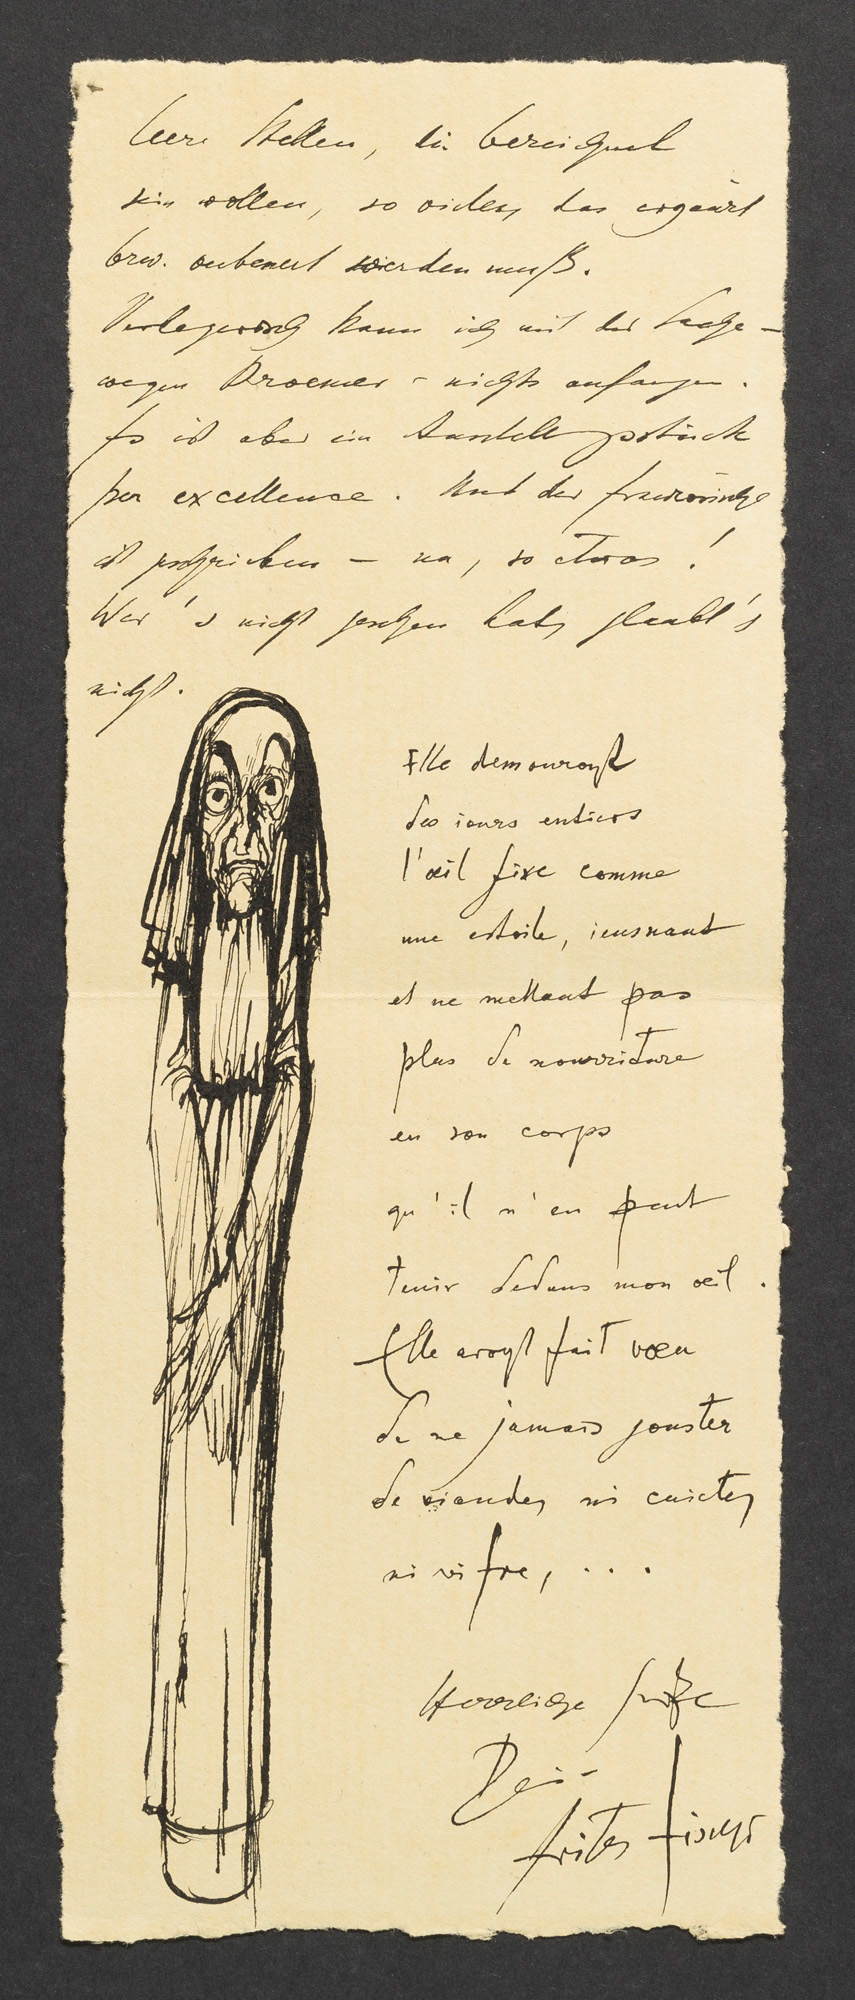 leere Stellen, die bereichert
sein wollen, so vieles, das ergänzt
bzw. verbessert werden muß.
Verlegerisch kann ich mit der Sache -
wegen Droemer - nichts anfangen.
Es ist aber ein Kabinettstück
per excellence. Und der französische
ist geschrieben — na, so etwas!
Wer's nicht gesehen hat, glaubt's
nicht.
Elle demouroyt
des iours entiers
l'œil fixe comme
une estoile, ieusnant
et ne mettant pas
plus de nourriture
en son corps
qu'il n'en peut
tenir dedans mon œil.
Elle avoyt fait vœu
de ne jamais gouster
de viandes, ni cuictes
ni vifve, ...
Herzliche Grüße
Dein
Fritz Fischer